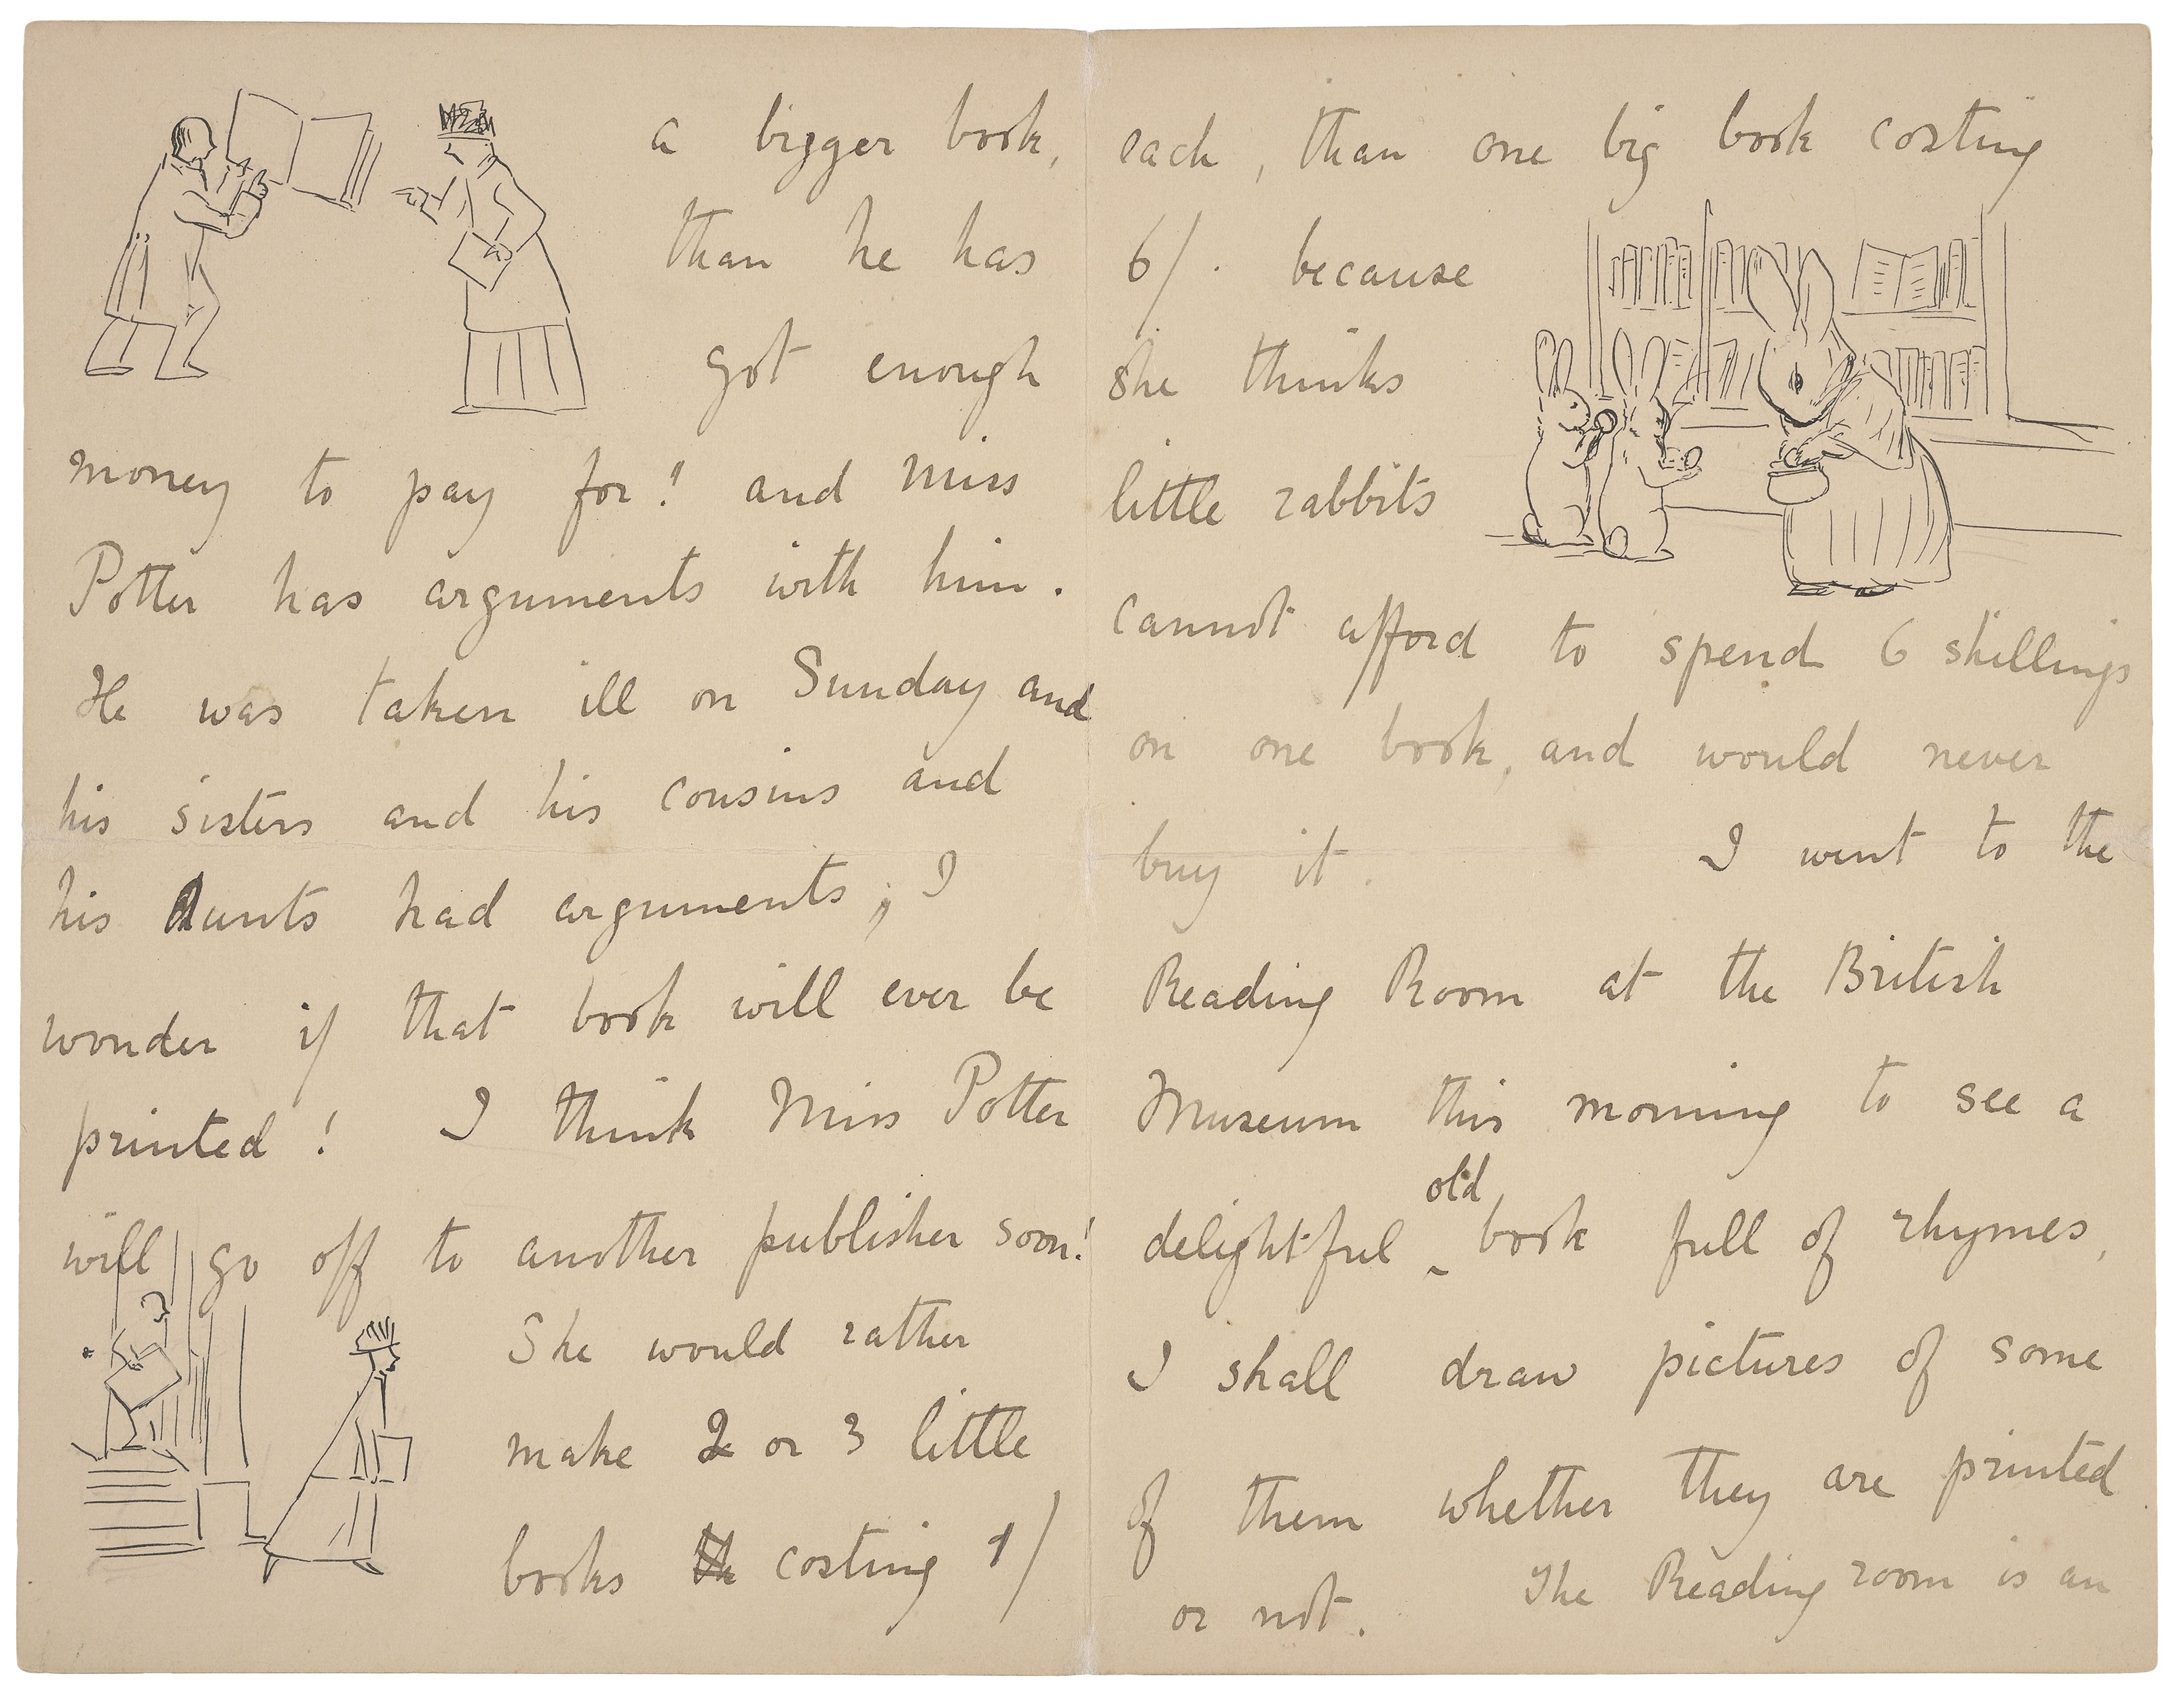 a bigger book,
than he has
got enough
money to pay for! and Miss
Potter has arguments with him.
He was taken ill on Sunday and
his sisters and his cousins and
his Aunts had arguments; I
wonder if that book will ever be
printed! I think Miss Potter
will go off to another publisher soon!
She would rather
make 2 or 3 little
books costing 1/
each, than one big book costing
6/. because
she thinks
little rabbits
cannot afford to spend 6 shillings
on one book, and would never
buy it. I went to the
Reading Room at the British
Museum this morning to see a
old
delightful ‸ book full of rhymes,
I shall draw pictures of some
of them whether they are printed
or not. The Reading room is an